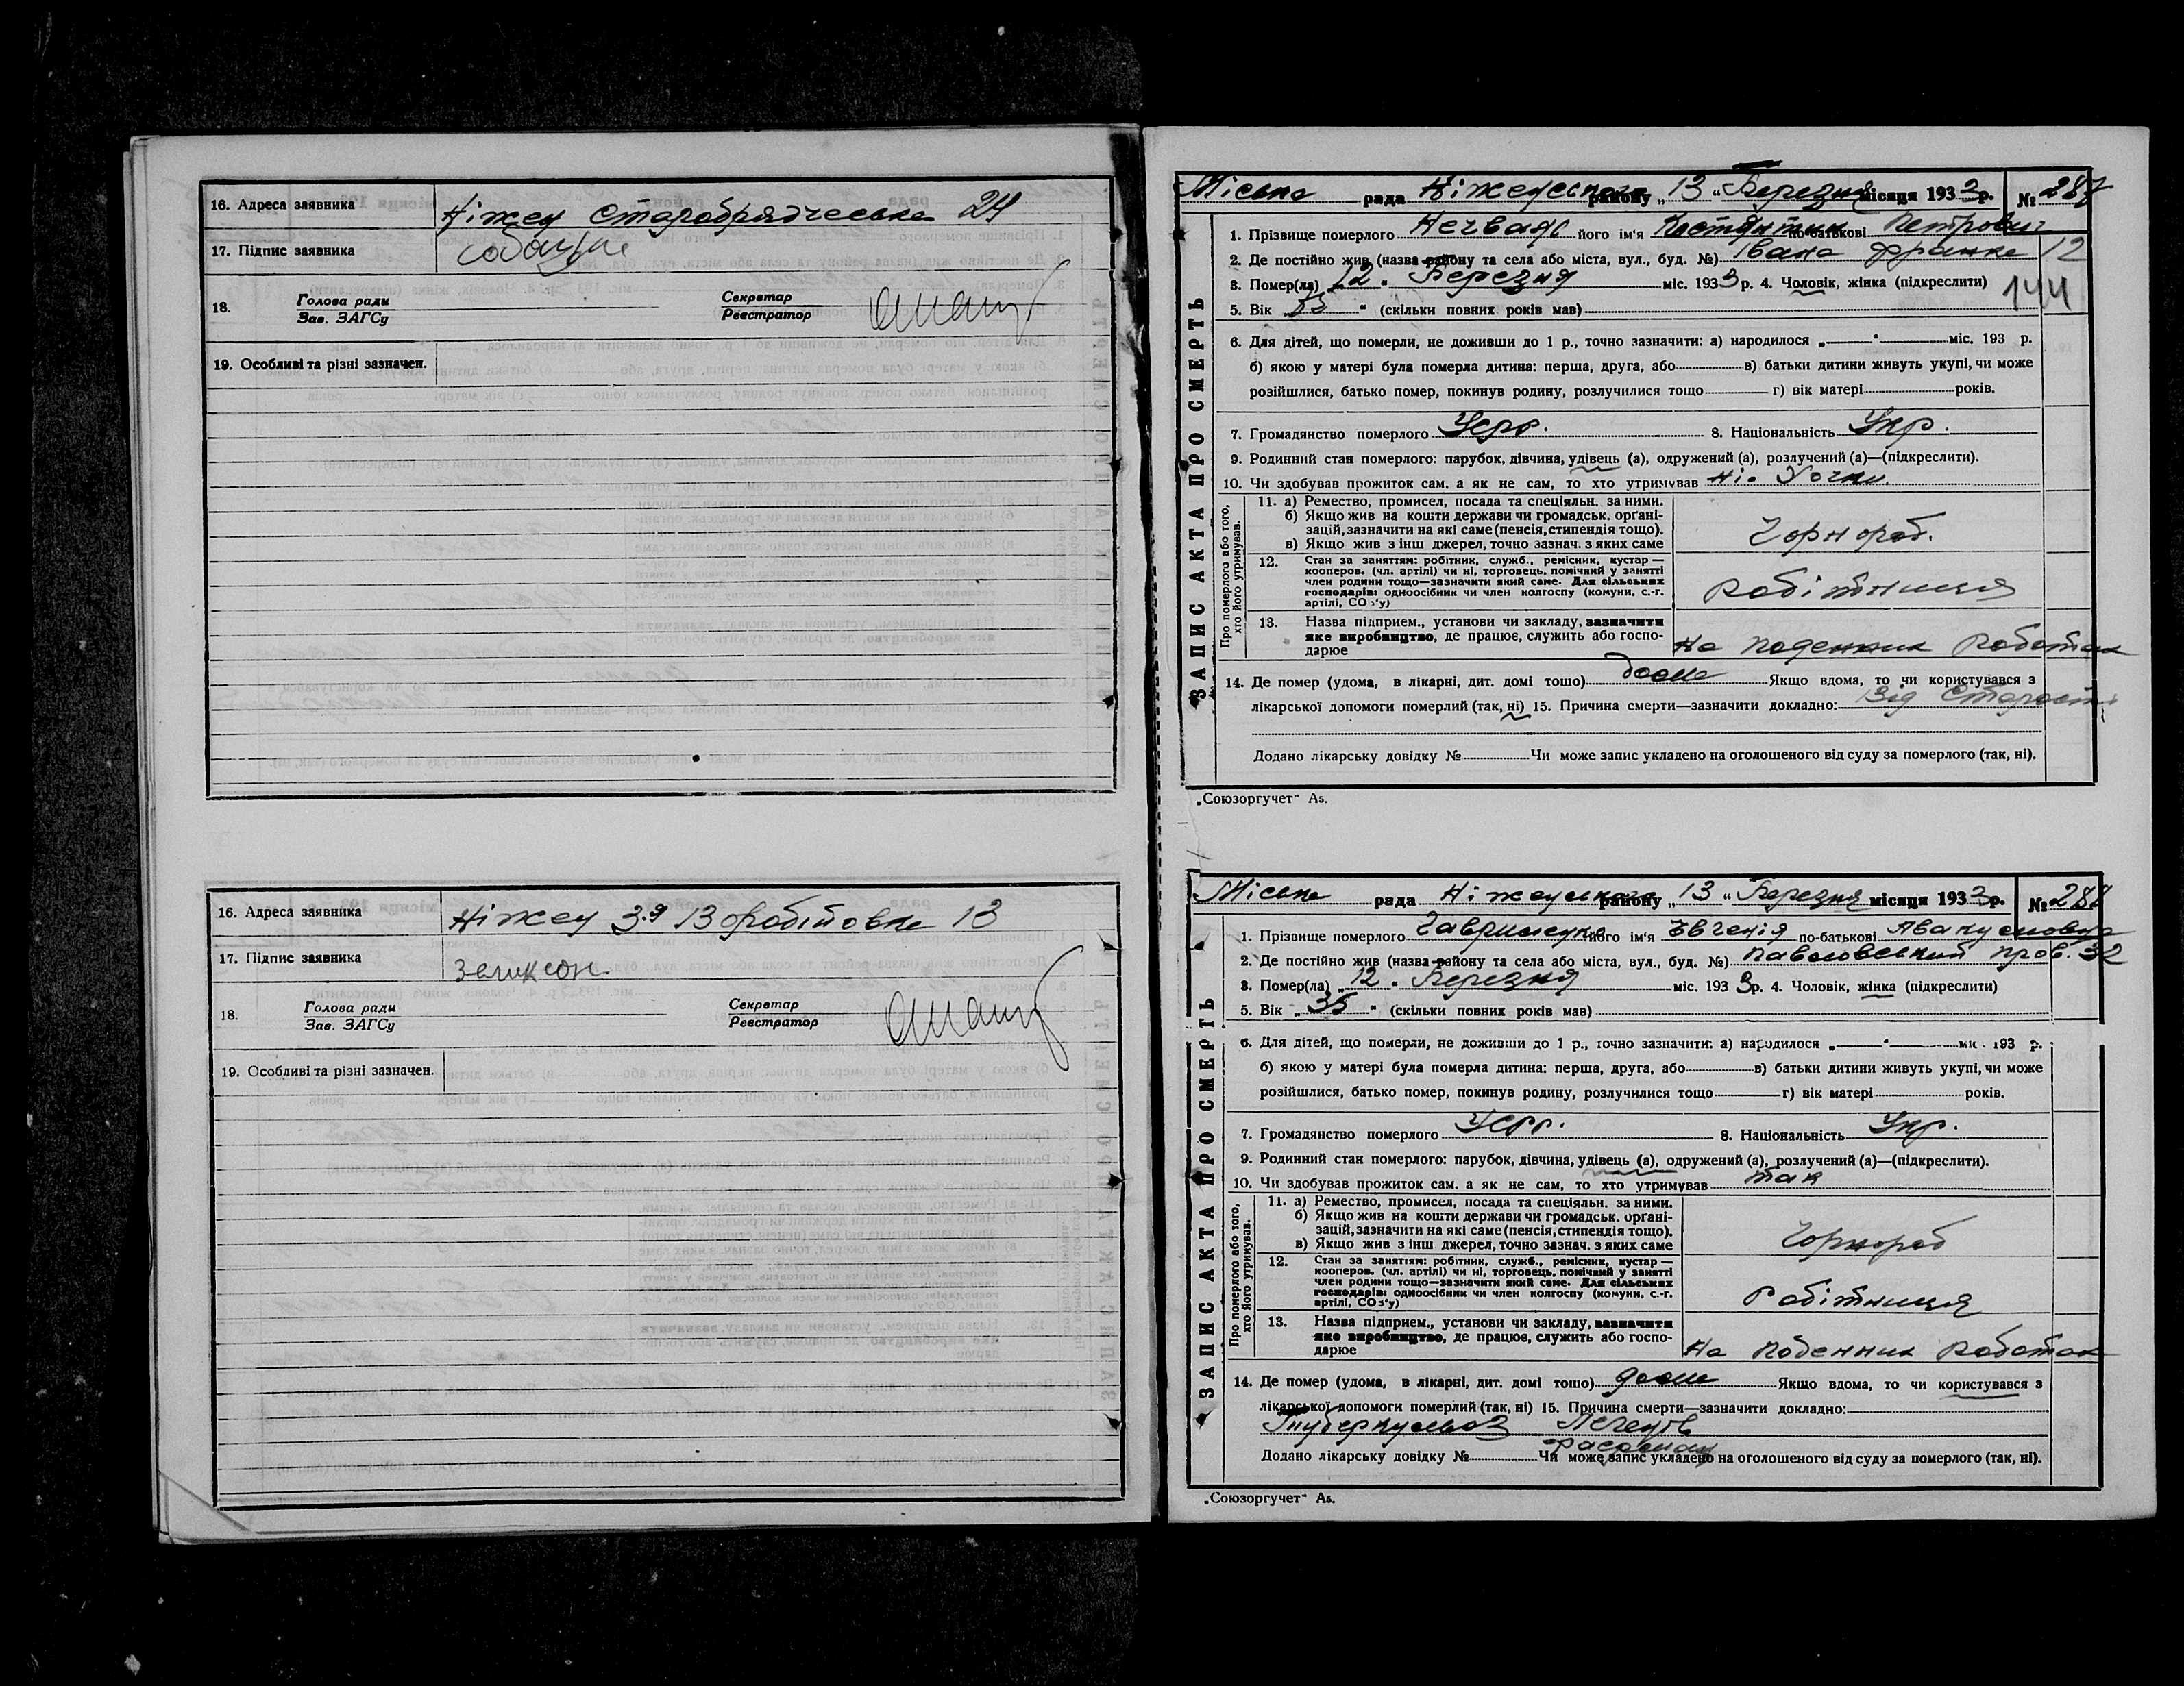 16. Адреса заявника Ніжен Старобрядческа 24
17. Підпис заявника
18. Голова ради Секретар
Зав. ЗАГСу Реєстратор
19. Особливі та різні зазначен.
16. Адреса заявника Ніжен 3-я 13
17. Підпис заявника
18. Голова ради Секретар
Зав. ЗАГСу Реєстратор
19. Особливі та різні зазначен.
ЗАПИС АКТА ПРО СМЕРТЬ
Міська рада Ніженського району „ 13 “ Березня місяця 1933 р. № 287
1. Прізвище померлого його ім'я Костянтин по-батькові Петрович
2. Де постійно жив (назва району та села або міста, вул., буд. №) Івана Франка 12
3. Помер(ла) 12 " Березня міс. 1933 р. 4. Чоловік, жінка (підкреслити) 144
5. Вік " (скільки повних років мав)
6. Для дітей, що померли, не доживши до 1 р., точно зазначити: а) народилося „ “ міс. 193 р.
б) якою у матері була померла дитина: перша, друга, або в) батьки дитини живуть укупі, чи може
розійшлися, батько помер, покинув родину, розлучилися тощо г) вік матері років.
7. Громадянство померлого Уср. 8. Національність Укр.
9. Родинний стан померлого: парубок, дівчина, удівець (а), одружений (а), розлучений (а)—(підкреслити).
10. Чи здобував прожиток сам, а як не сам, то хто утримував ні. Дочка.
Про померлого або того, хто його утримував.
11. а) Ремество, промисел, посада та спеціяльн. за ними.
б) Якщо жив на кошти держави чи громадськ. органі-
зацій, зазначити на які саме (пенсія, стипендія тощо).
в) Якщо жив з інш джерел, точно зазнач. з яких саме
Чорнороб.
12. Стан за заняттям: робітник, служб., ремісник, кустар —
кооперов. (чл. артілі) чи ні, торговець, помічний у занятті
член родини тощо—зазначити який саме. Для сільських
господарів: одноосібник чи член колгоспу (комуни, с.-г.
артілі, СОЗ'у)
Робітниця
13. Назва підприєм., установи чи закладу, зазначити
яке виробництво, де працює, служить або госпо-
дарює
На поденних роботах
14. Де помер (удома, в лікарні, дит. домі тошо) дома Якщо вдома, то чи користувався з
лікарської допомоги померлий (так, ні) 15. Причина смерти—зазначити докладно: Від старости
Додано лікарську довідку № Чи може запис укладено на оголошеного від суду за померлого (так, ні).
„Союзоргучет“ А5.
ЗАПИС АКТА ПРО СМЕРТЬ
Міська рада Ніженського району „ 13 “ Березня місяця 1933 р. № 288
1. Прізвище померлого його ім'я Євгенія по-батькові
2. Де постійно жив (назва району та села або міста, вул., буд. №) Павловський пров. 32
3. Помер(ла) „ 12 " Березня міс. 1933 р. 4. Чоловік, жінка (підкреслити)
5. Вік „ 35 " (скільки повних років мав)
6. Для дітей, що померли, не доживши до 1 р., точно зазначити: а) народилося „ “ міс. 193 р.
б) якою у матері була померла дитина: перша, друга, або в) батьки дитини живуть укупі, чи може
розійшлися, батько помер, покинув родину, розлучилися тощо г) вік матері років.
7. Громадянство померлого Уср. 8. Національність Укр.
9. Родинний стан померлого: парубок, дівчина, удівець (а), одружений (а), розлучений (а)—(підкреслити).
10. Чи здобував прожиток сам, а як не сам, то хто утримував так
Про померлого або того, хто його утримував.
11. а) Ремество, промисел, посада та спеціяльн. за ними.
б) Якщо жив на кошти держави чи громадськ. органі-
зацій, зазначити на які саме (пенсія, стипендія тощо).
в) Якщо жив з інш джерел, точно зазнач. з яких саме
Чорнороб
12. Стан за заняттям: робітник, служб., ремісник, кустар —
кооперов. (чл. артілі) чи ні, торговець, помічний у занятті
член родини тощо—зазначити який саме. Для сільських
господарів: одноосібник чи член колгоспу (комуни, с.-г.
артілі, СОЗ'у)
Робітниця
13. Назва підприєм., установи чи закладу, зазначити
яке виробництво, де працює, служить або госпо-
дарює
На поденних роботах
14. Де помер (удома, в лікарні, дит. домі тошо) дома Якщо вдома, то чи користувався з
лікарської допомоги померлий (так, ні) 15. Причина смерти—зазначити докладно:
Туберкульоз Легенів
Додано лікарську довідку № Чи може запис укладено на оголошеного від суду за померлого (так, ні).
„Союзоргучет“ А5.